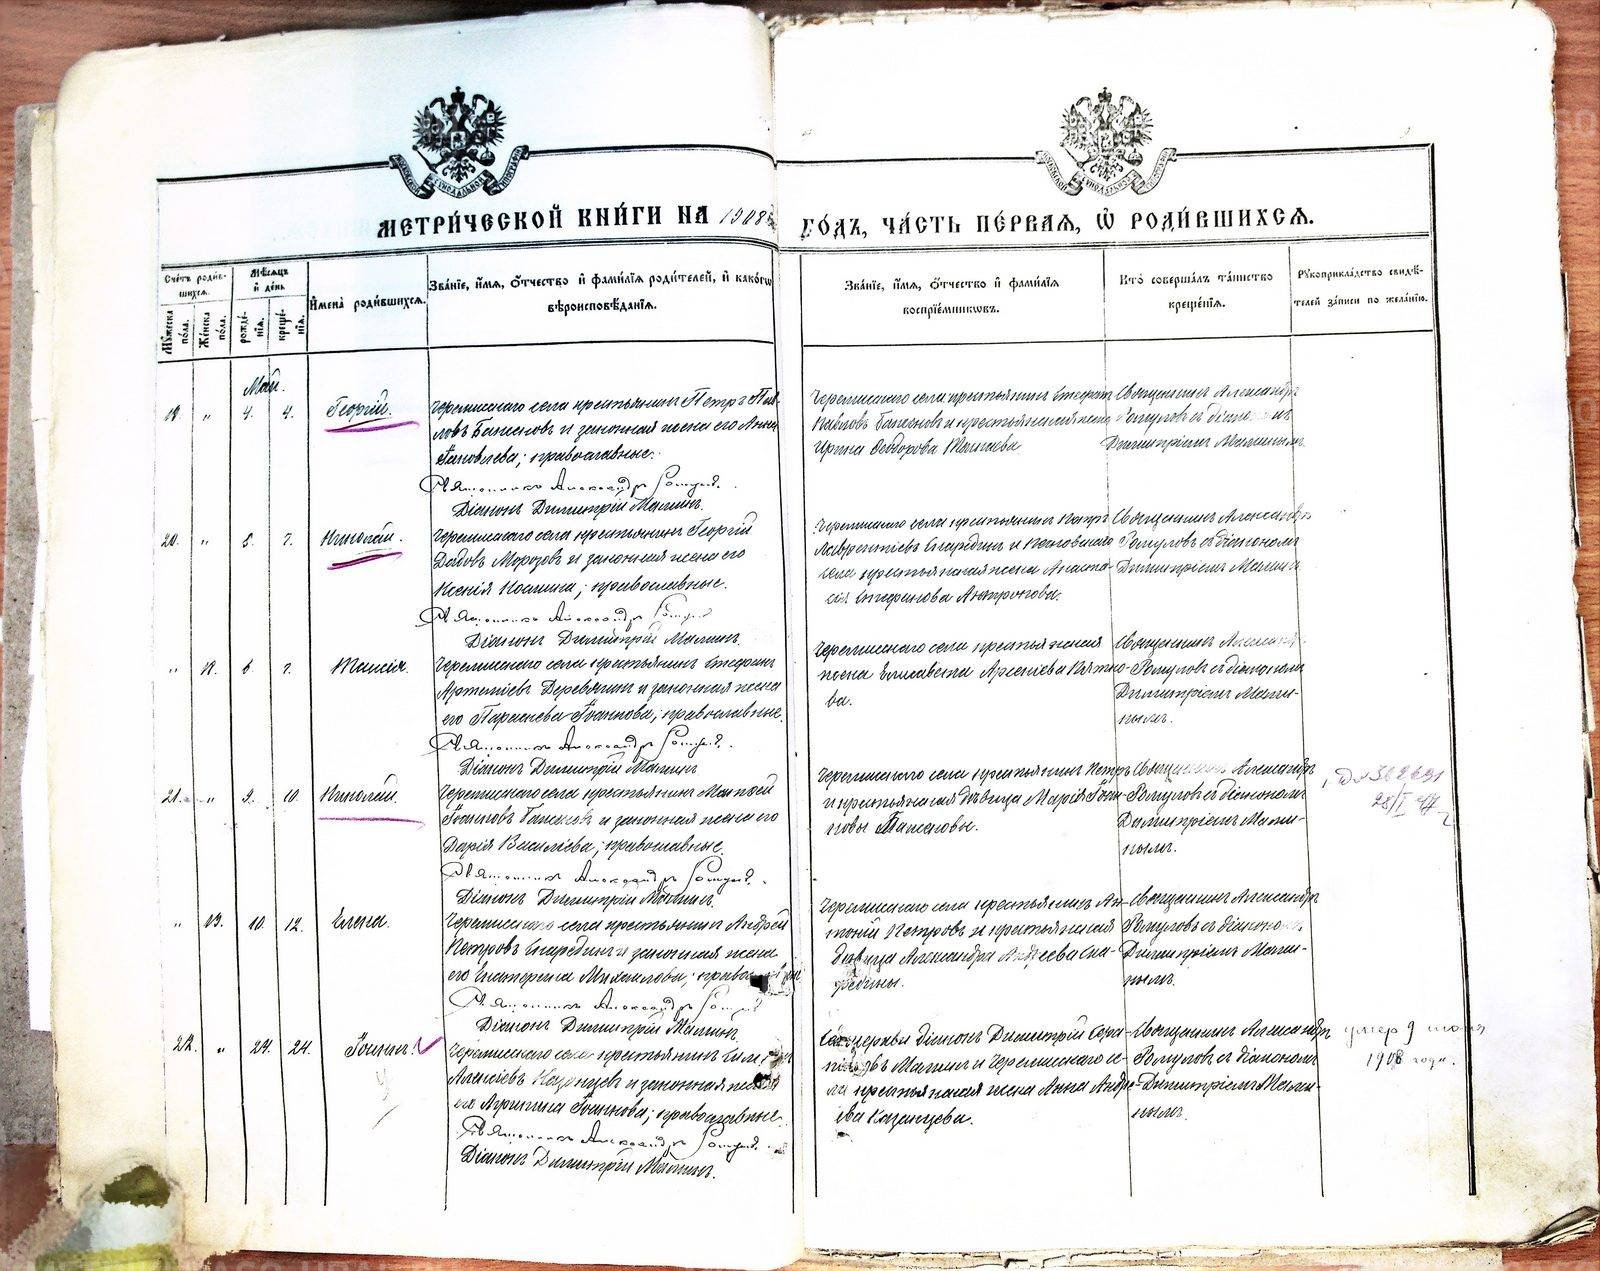 МЕТРИ́ЧЕСКОЙ КНИ́ГИ НА 1908й
ГО́ДЪ, ЧА́СТЬ ПЕ́РВАЯ, Ѡ҆ РОДИ́ВШИХСЯ.
Сче́тъ роди́в-
шихся.
Му́жеска по́ла.
Же́нска по́ла.
Мѣ́сяцъ
и҆ де́нь
рожде́-
нїя.
креще́-
нїя.
И҆мена̀ роди́вшихся.
Зва́нїе, и҆́мя, ѻ҆́тчество и҆ фами́лїя роди́телей, и҆ како́гѡ
вѣроисповѣ́данїя.
Зва́нїе, и҆́мя, ѻ҆́тчество и҆ фами́лїя
воспрїе́мникѡвъ.
Кто̀ соверша́лъ та́инство
креще́нїя.
Рꙋкоприкла́дство свидѣ́-
телей за́писи по жела́нїю.
Май.
19. „ 4. 4. Георгій.
Черемисскаго села крестьянинъ Петръ Пав-
ловъ Баженовъ и законная жена его Анна
Яковлева; православные.
Священникъ Александръ Ромулов.
Діаконъ Димитрій Малинъ.
Черемисскаго села крестьянинъ
Павловъ Баженовъ и крестьянская жена
Ирина Ѳеодорова
Священникъ Александръ
Ромуловъ съ діакономъ
Димитріемъ Малинымъ.
20. „ 5. 7. Николай.
Черемисскаго села крестьянинъ Георгій
Морозовъ и законная жена его
Ксенія православные.
Священникъ Александръ Ромулов
Діаконъ Димитрій Малинъ.
Черемисскаго села крестьянинъ Петръ
Лаврентіевъ Скарединъ и
села крестьянская жена Анаста-
сія Стефанова Антропова.
Священникъ Александръ
Ромуловъ съ діакономъ
Димитріемъ Малин
„ 12. 6. 7. Таисія.
Черемисскаго села крестьянинъ Стефанъ
Артеміевъ Деревнинъ и законная жена
его Параскева Іоаннова; православные.
Священникъ Александръ Ромулов.
Діаконъ Димитрій Малинъ
Черемисскаго села крестьянская
жена Елисавета Арсеніева Пятко-
ва.
Священникъ Александръ
Ромуловъ съ діакономъ
Димитріемъ Мали-
нымъ.
21. „ 9. 10. Николай.
Черемисскаго села крестьянинъ Матѳей
Іоанновъ Баженовъ и законная жена его
Дарія Василіева; православные.
Священникъ Александръ Ромулов.
Діаконъ Димитрій Малинъ.
Черемисскаго села крестьянинъ Петръ
и крестьянская дѣвица Марія Іоан-
новы Баженовы.
Священникъ Александръ
Ромуловъ съ діакономъ
Димитріемъ Мали-
нымъ.
28/I
„ 13. 10. 12. Елена.
Черемисскаго села крестьянинъ Андрей
Петровъ Скарединъ и законная жена
его Екатерина Михаилова;
Священникъ Александръ Ромулов
Діаконъ Димитрій Малинъ.
Черемисскаго села крестьянинъ Ан-
тоній Петровъ и крестьянская
дѣвица Александра Андреева Ска-
редины.
Священникъ Александръ
Ромуловъ съ діакономъ
Димитріемъ Мали-
нымъ.
22. „ 24. 24. Іоаннъ.
Черемисскаго села крестьянинъ
Алексіевъ Казанцевъ и законная жена
его Агриппина Іоаннова; православные.
Священникъ Александръ Ромулов.
Діаконъ Димитрій Малинъ.
церкви діаконъ Димитрій Сера-
Малинъ и Черемисскаго се-
ла крестьянская жена Анна Андре-
ева Казанцева.
Священникъ Александръ
Ромуловъ съ діакономъ
Димитріемъ Мали-
нымъ.
умер 9 июня
1908 года.